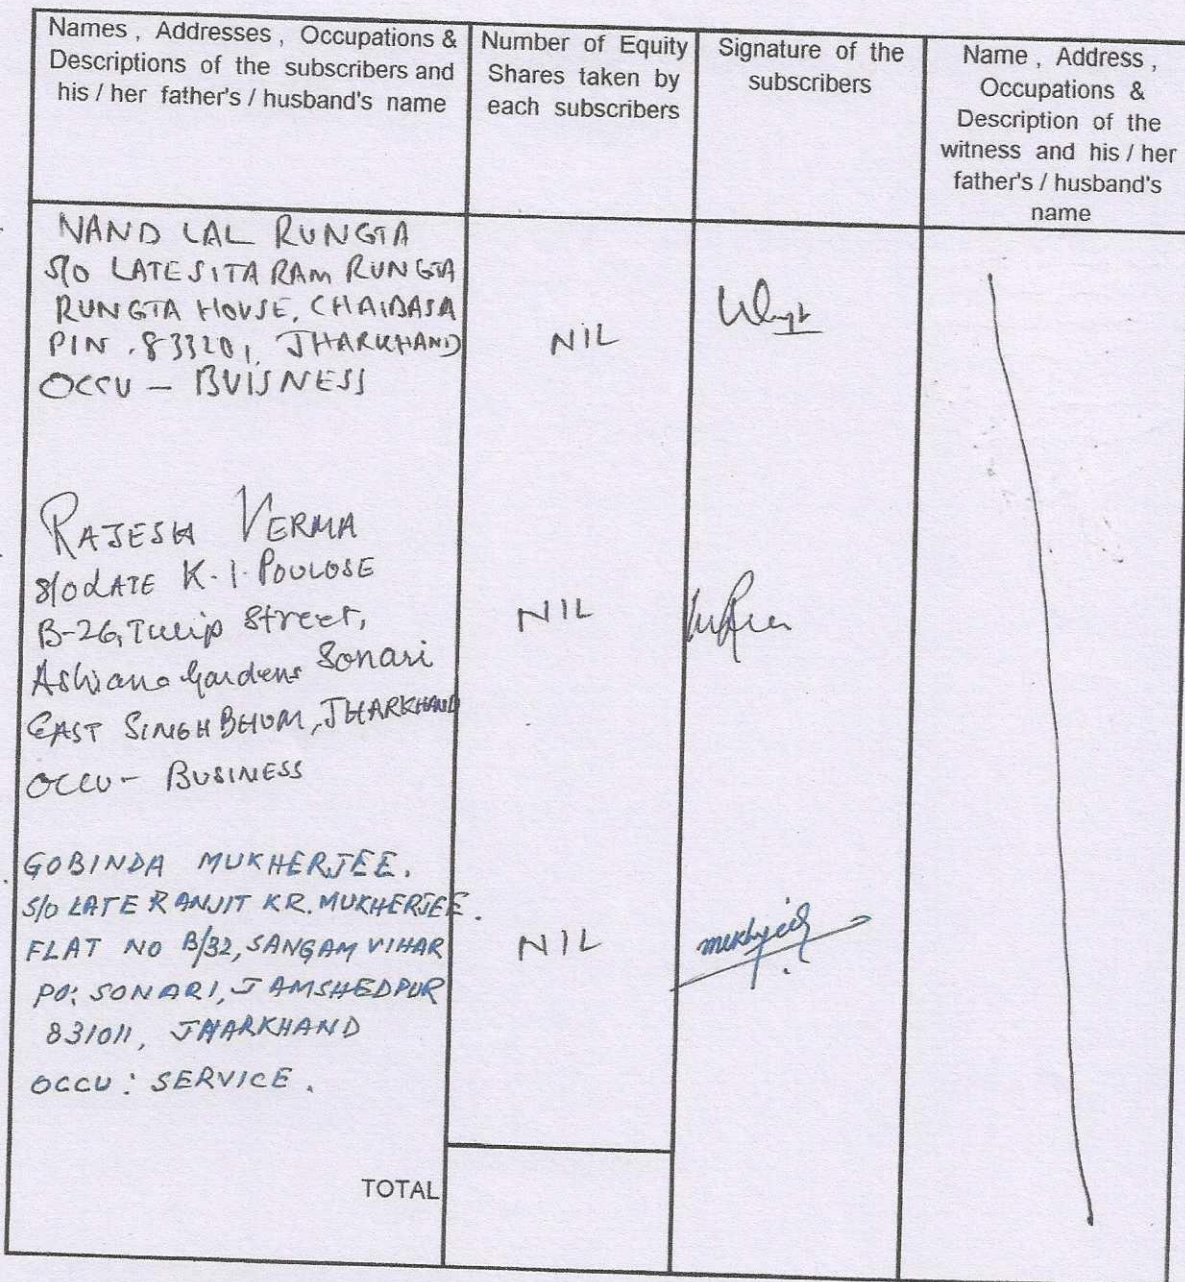 Names , Addresses , Occupations &
Descriptions of the subscribers and
his / her father's / husband's name
Number of Equity
Shares taken by
each subscribers
Signature of the
subscribers
Name , Address ,
Occupations &
Description of the
witness and his / her
father's / husband's
name
NAND LAL RUNGTA
S/O LATE SITA RAM RUNGTA
RUNGTA HOUSE, CHAIBASA
PIN . 833201, JHARKHAND
OCCU - BUISNESS
NIL
RAJESH VERMA
S/O LATE K. I. POULOSE
B-26, Tulip Street,
Ashiana Gardens Sonari
EAST SINGHBHUM, JHARKHAND
OCCU - BUSINESS
NIL
GOBINDA MUKHERJEE.
S/O LATE RANJIT KR. MUKHERJEE.
FLAT NO B/32, SANGAM VIHAR
PO: SONARI, JAMSHEDPUR
831011, JHARKHAND
OCCU : SERVICE .
NIL
TOTAL